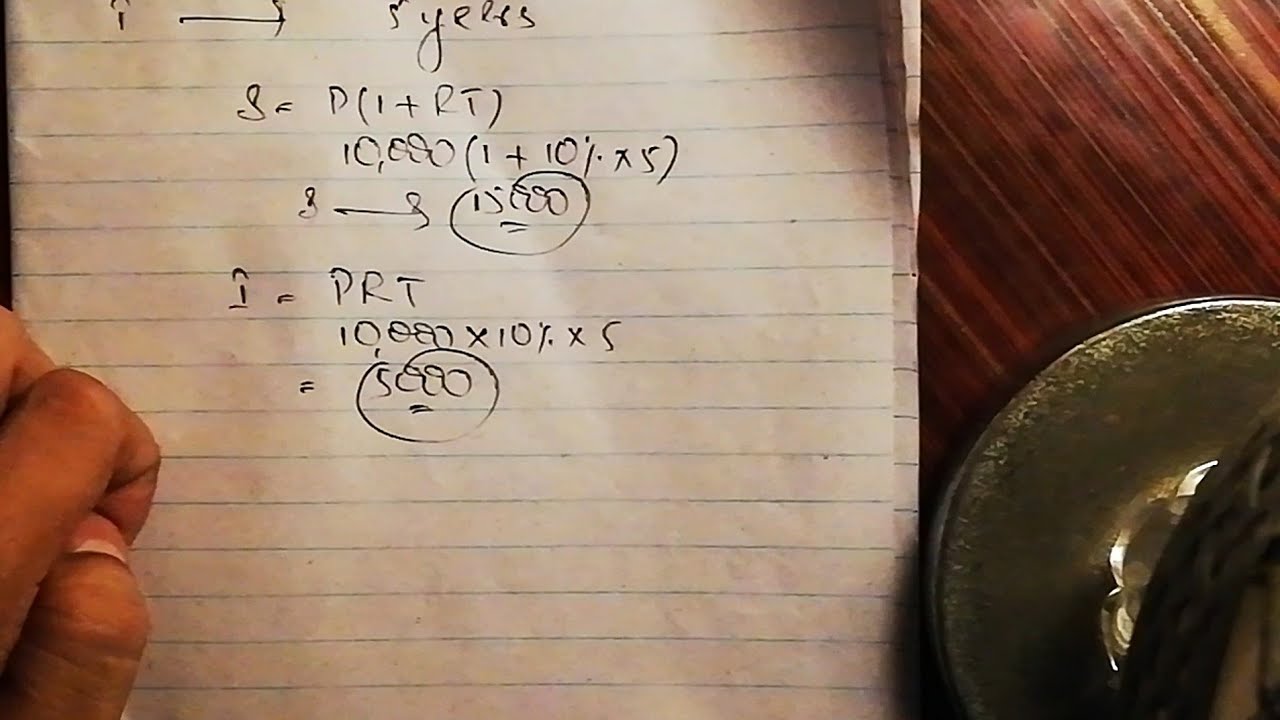 T → 5 years
S = P(1+RT)
10,000(1 + 10% × 5)
S → 15000
I = PRT
10,000 × 10% × 5
= 5000